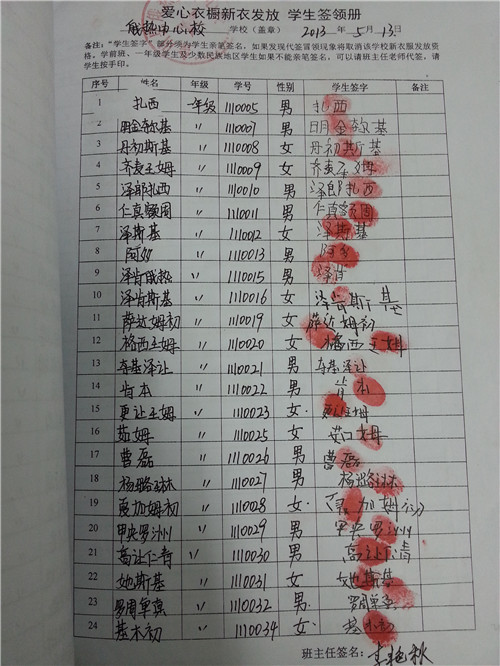 爱心衣橱新衣发放 学生签领册
俄热中心校 学校（盖章） 2013年5月13日
备注：“学生签字”部分须为学生亲笔签名，如果发现代签冒领现象将取消该学校新衣服发放资
格，学前班、一年级学生及少数民族地区学生如果不能亲笔签名，可以请班主任老师代签，请
学生按手印。
序号 姓名 年级 学号 性别 学生签字 备注
1 扎西 一年级 1110005 男 扎西
2 明金弥基 〃 1110007 男 明金弥基
3 丹初斯基 〃 1110008 女 丹初斯基
4 齐麦王姆 〃 1110009 女 齐麦王姆
5 泽郎扎西 〃 1110010 男 泽郎扎西
6 仁真额周 〃 1110011 男 仁真额周
7 泽斯基 〃 1110012 女 泽斯基
8 阿多 〃 1110013 男 阿多
9 泽肯俄热 〃 1110015 男 泽肯
10 泽肯斯基 〃 1110016 女 泽肯斯基
11 萨达姆初 〃 1110019 女 萨达姆初
12 格西王姆 〃 1110020 女 格西王姆
13 春基泽让 〃 1110021 男 春基泽让
14 肯本 〃 1110022 男 肯本
15 更让王姆 〃 1110023 女 更让王姆
16 茹姆 〃 1110025 女 茹姆
17 曹磊 〃 1110026 男 曹磊
18 杨璐林 〃 1110027 男 杨璐林
19 夏加姆初 〃 1110028 女 夏加姆初
20 甲央罗洲 〃 1110029 男 甲央罗洲
21 高让仁青 〃 1110030 男 高让仁青
22 她斯基 〃 1110031 女 她斯基
23 罗周单真 〃 1110032 男 罗周单真
24 基木初 〃 1110034 女 基木初
班主任签名：李艳秋